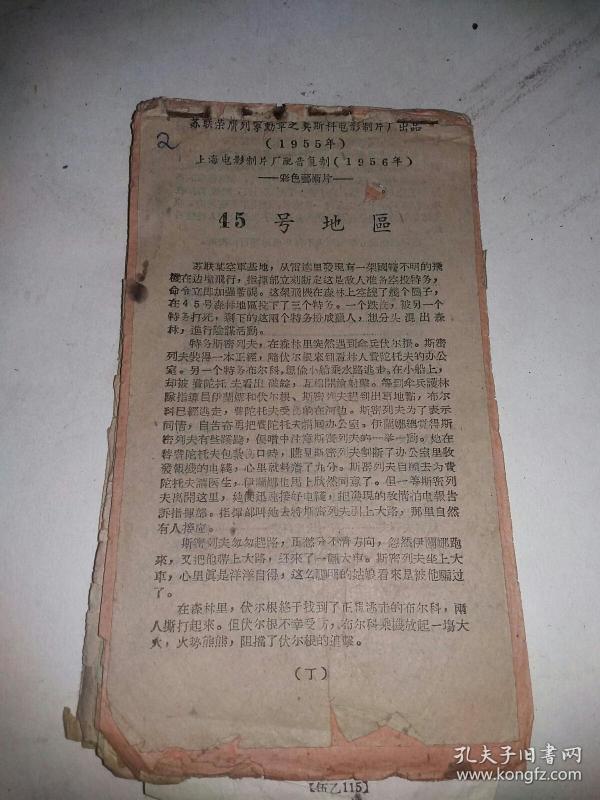 2
苏联荣膺列寧勳章之莫斯科电影制片厂出品
(1955年)
上海电影制片厂配音复制(1956年)
——彩色故事片——
45号地區
苏联某空軍基地，从雷达里發現有一架國籍不明的飛
機在边境飛行，指揮部立刻断定这是敌人准备空投特务，
命令立即加强警戒。这架飛機在森林上空繞了幾个圈子，
在45号森林地區投下了三个特务。一个跌傷，被另一个
特务打死，剩下的这兩个特务扮成獵人，想分头混出森
林，進行陰謀活動。
特务斯密列夫，在森林里突然遇到傘兵伏尔根。斯密
列夫裝得一本正經，隨伏尔根來到看林人費陀托夫的办公
室。另一个特务布尔科，想偷小船乘水路逃走。在小船上，
却被費陀托夫看出破綻，互相開槍射擊。等到傘兵護林
隊指導員伊蘭娜和伏尔根、斯密列夫趕到出事地點，布尔
科已經逃走，費陀托夫受傷躺在河边。斯密列夫为了表示
同情，自告奋勇把費陀托夫揹回办公室。伊蘭娜總覺得斯
密列夫有些蹊蹺，便暗中注意斯密列夫的一举一動。她在
替費陀托夫包紮伤口時，瞧見斯密列夫割断了办公室里收
發報機的电綫，心里就料着了九分。斯密列夫自願去为費
陀托夫請医生，伊蘭娜也馬上欣然同意了。但一等斯密列
夫离開这里，她便迅速接好电綫，把發現的敌情拍电報告
訴指揮部。指揮部叫她去將斯密列夫引上大路，那里自然
有人接應。
斯密列夫匆匆赶路，正愁分不清方向，忽然伊蘭娜跑
來，又把他帶上大路，赶來了一輛大車。斯密列夫坐上大
車，心里眞是洋洋自得，这么聰明的姑娘看來是被他瞞过
了。
在森林里，伏尔根終于找到了正在逃走的布尔科，兩
人撕打起來。但伏尔根不幸受伤，布尔科乘機放起一場大
火，火势熊熊，阻擋了伏尔根的追擊。
(丁)
【伍乙115】
孔夫子旧书网
www.kongfz.com